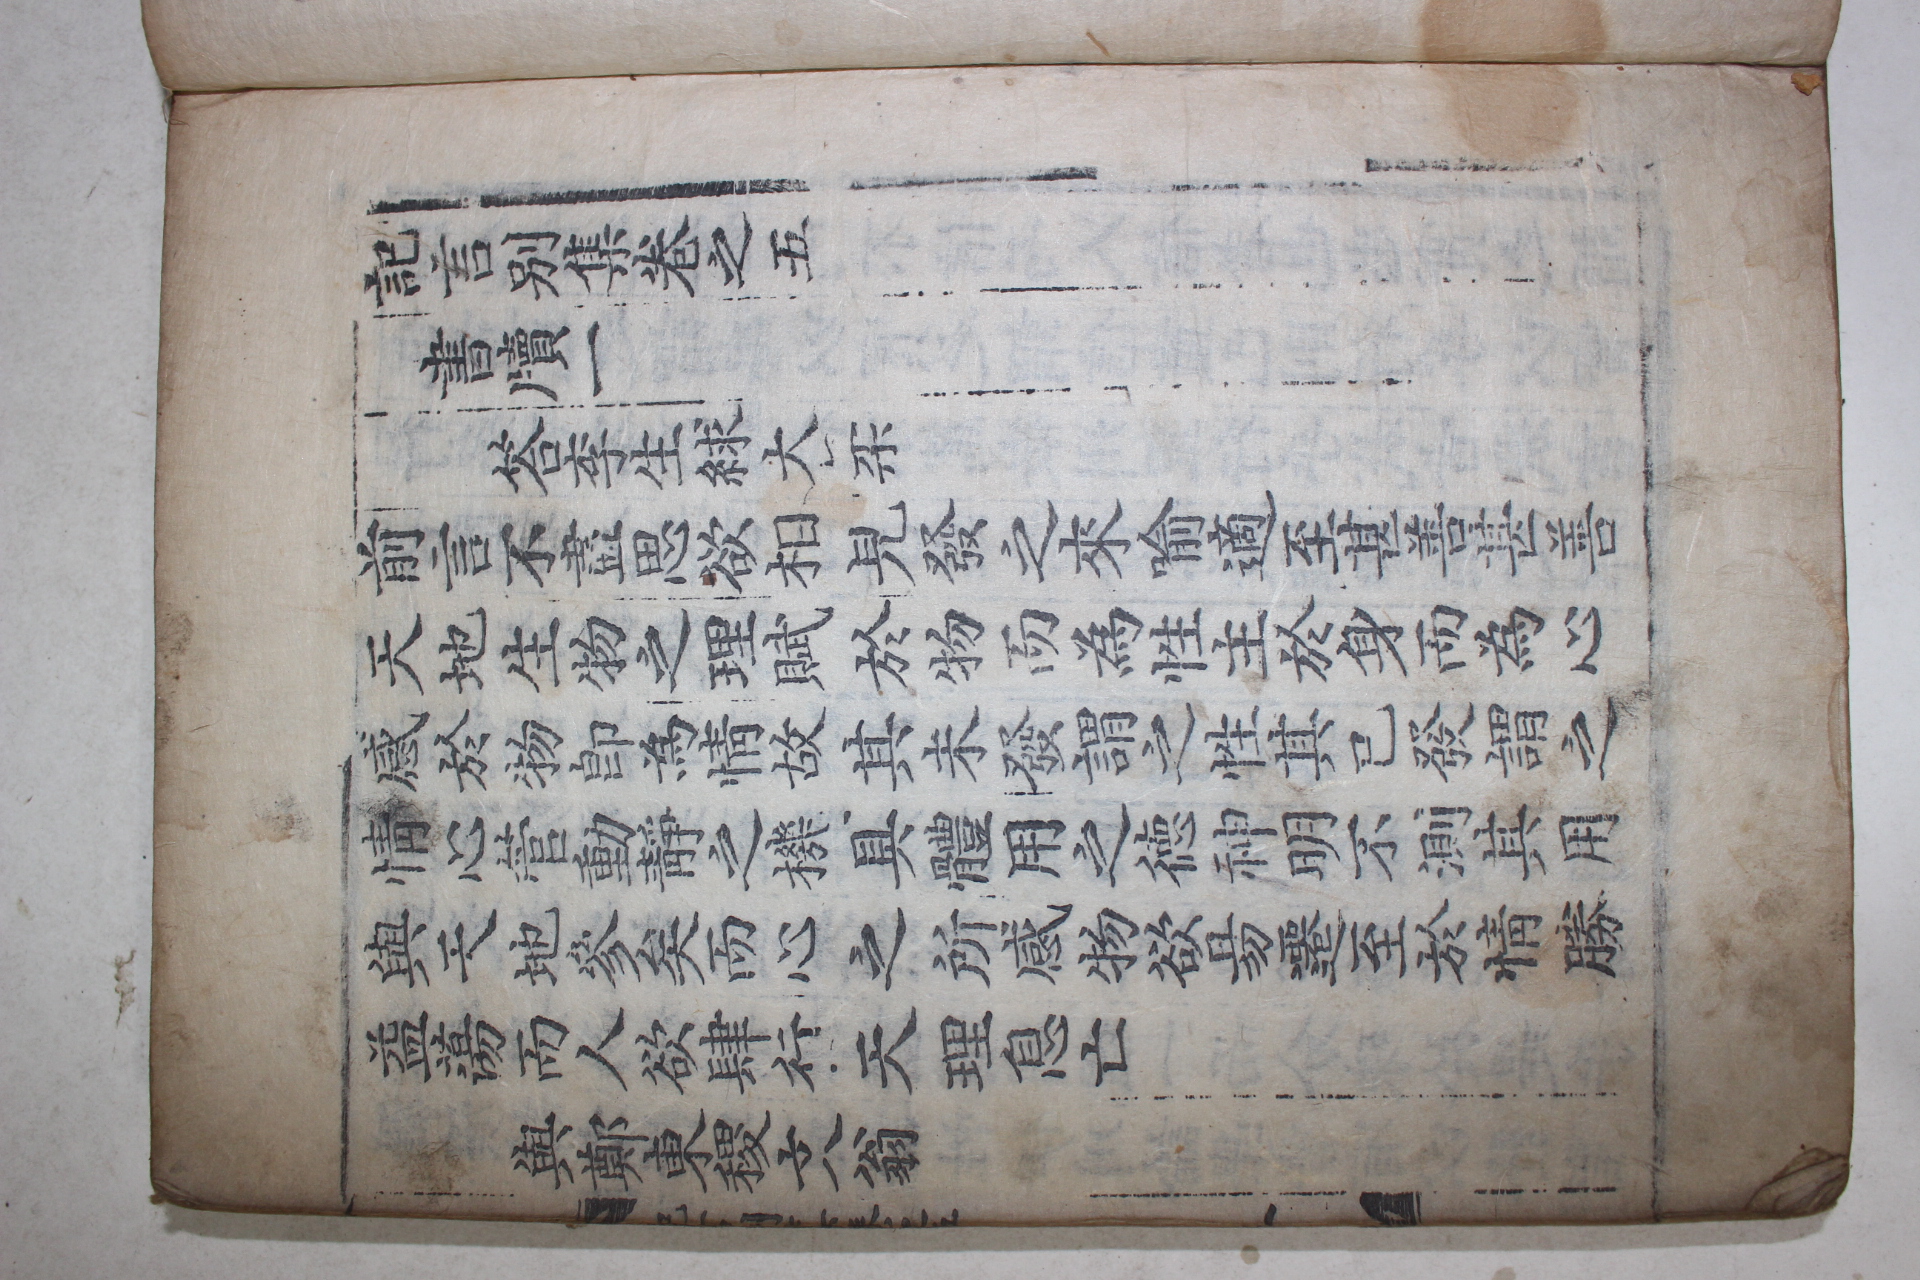 記言別集卷之五
書牘一
答李生綠大采
前言不盡思欲相見發之來喻適至甚善甚善
天地生物之理賦於物而為性主於身而為心
感於物卽為情故其未發謂之性其已發謂之
情心管動靜之機具體用之德神明不測其用
與天地參矣而心之所感物欲易遷至於情勝
益蕩而人欲肆行天理息亡
與鄭東稷文翁